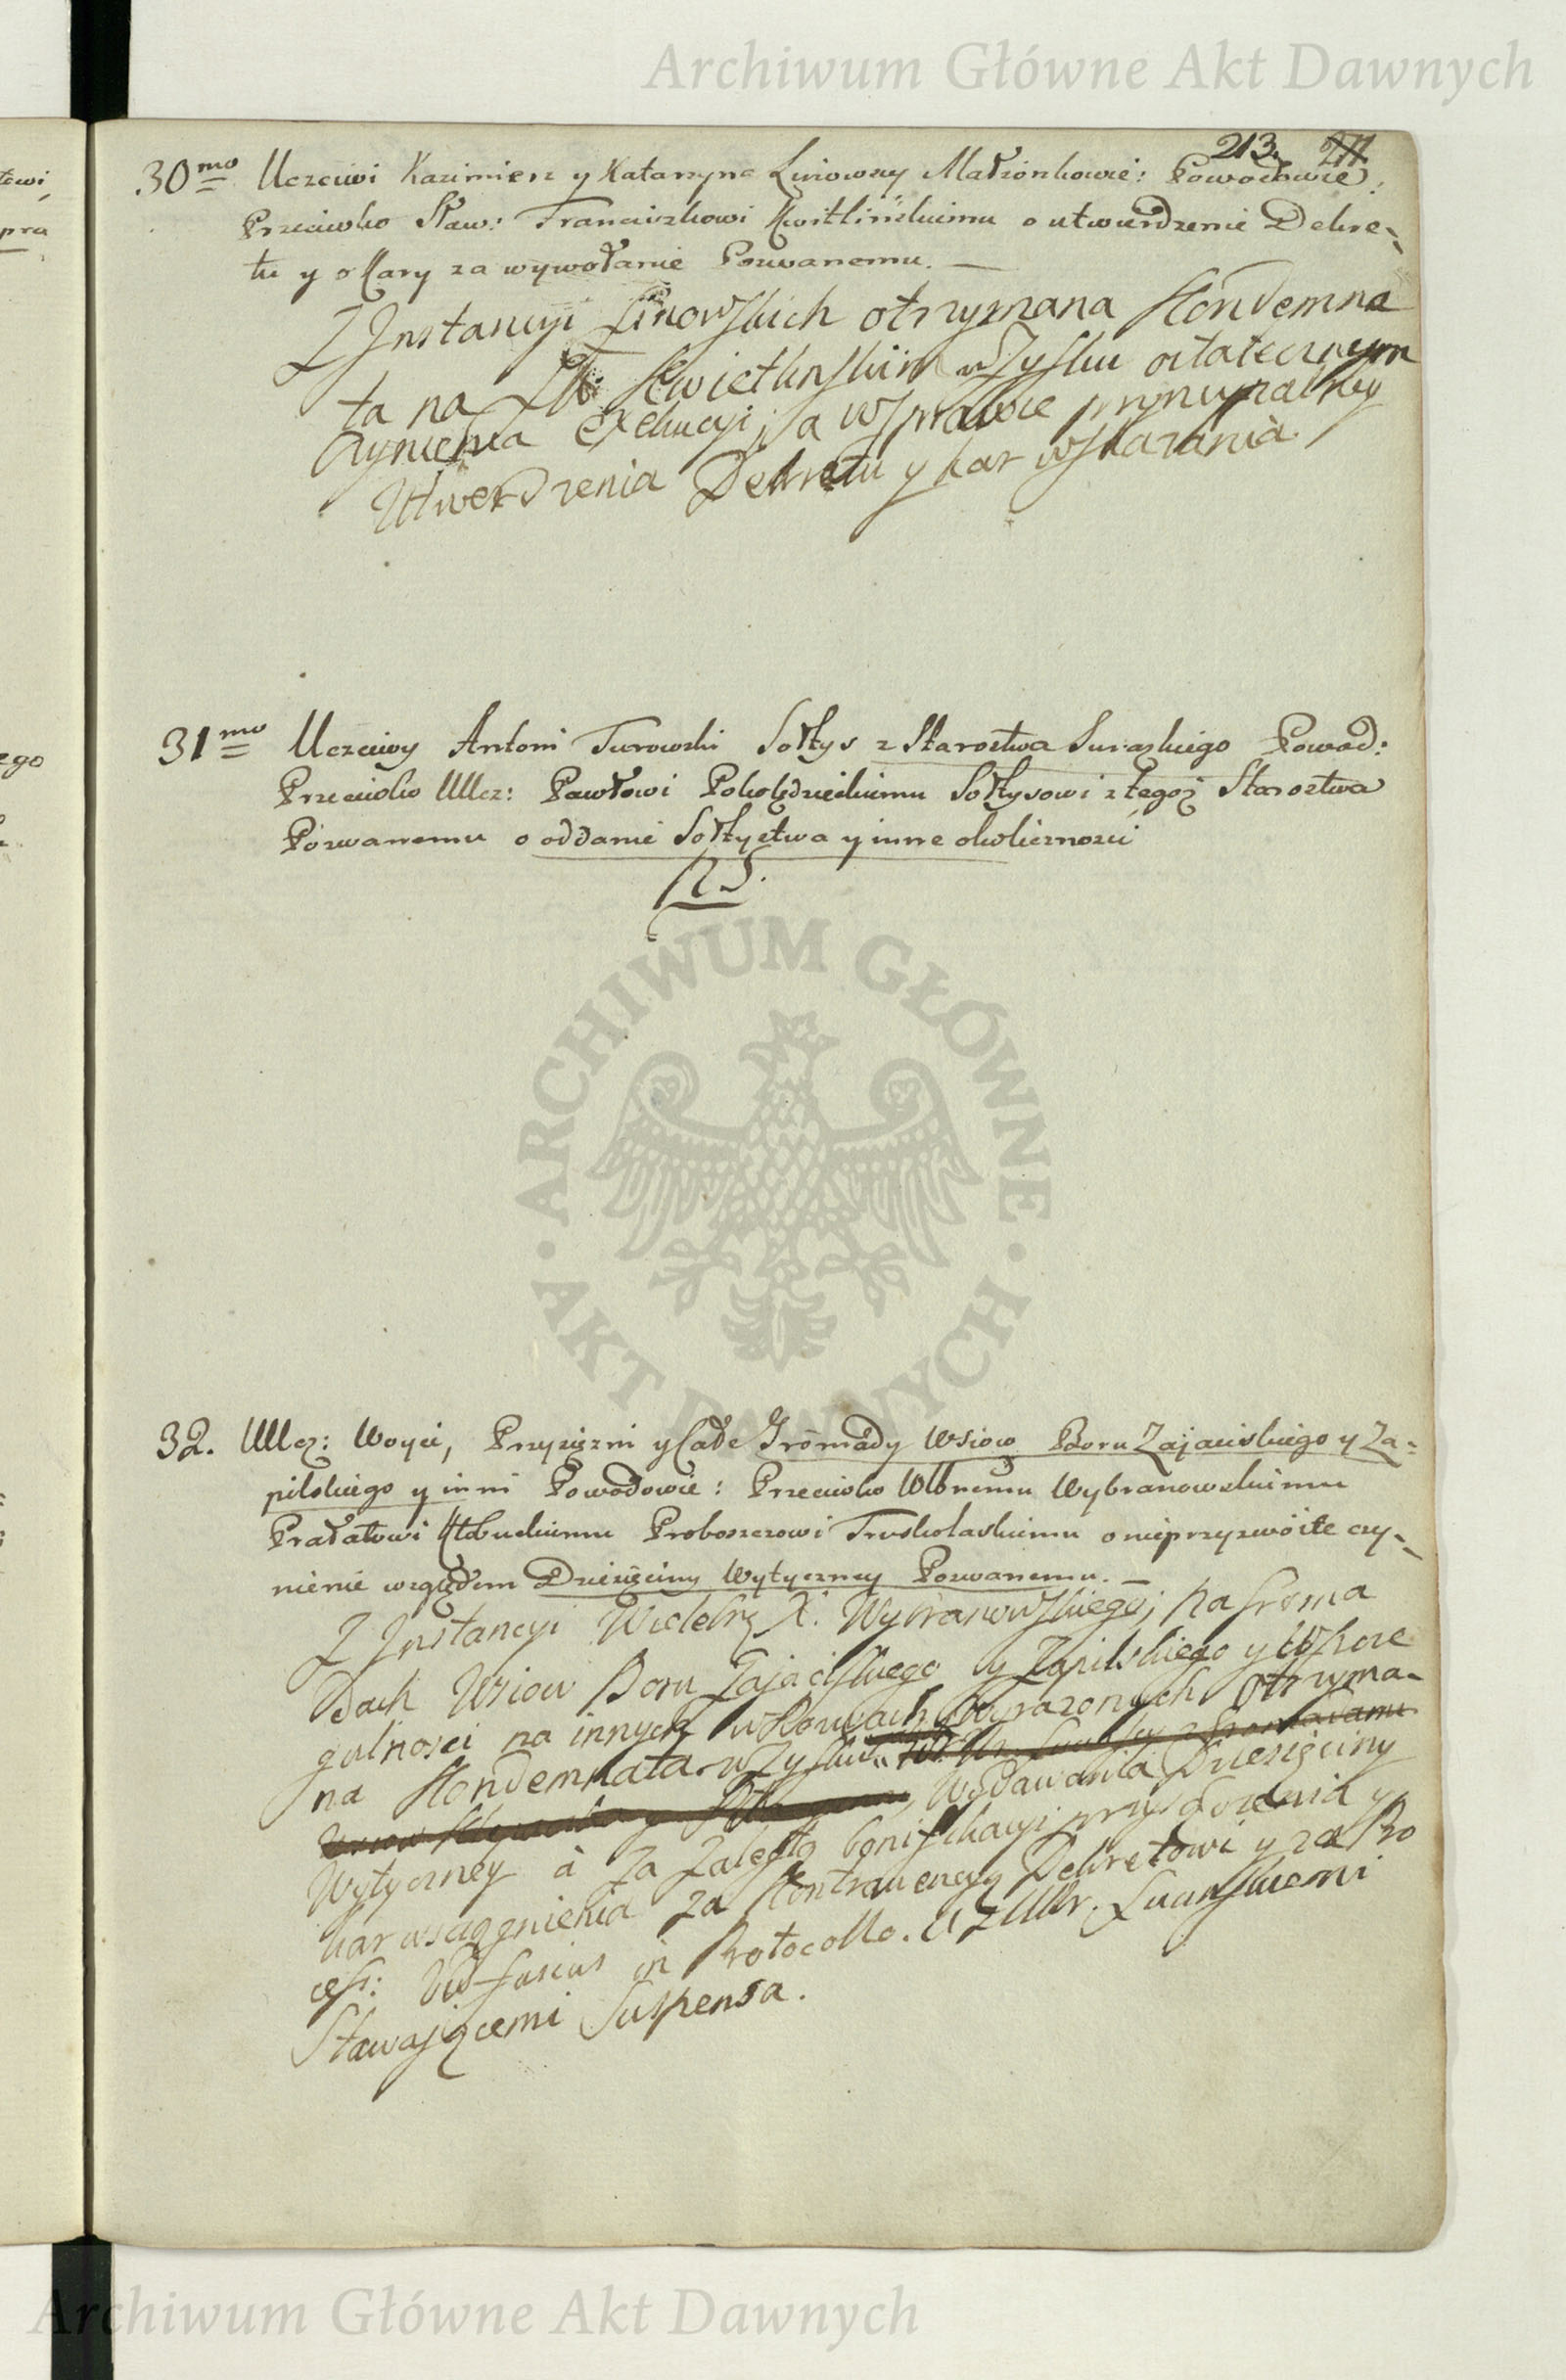 Archiwum Główne Akt Dawnych
213. 211
30mo Uczciwi Kazimierz y Katarzyna Linowscy Małżonkowie: Powodowie
Przeciwko Sław: Franciszkowi Kwitlińskiemu o utwierdzenie Dekre-
tu y o Kary za wywołanie Pozwanemu.
Z Instancyi Linowskich otrzymana Kondemna
ta na Kwietlinskim w Zysku ostatecznym
czynienia Exekucyi; a w sprawie pryncypalney
Utwerdzenia Dekretu y kar wskazania
31mo Uczciwy Antoni Turowski Sołtys z Starostwa Suraskiego Powod:
Przeciwko UUcz: Pawłowi Sołtysowi z tegoż Starostwa
Pozwanemu o oddanie Sołtystwa y inne okoliczności
NS.
ARCHIWUM GŁÓWNE
AKT DAWNYCH
32. UUcz: Woyci, Przysiężni y Całe Gromady Wsiow Boru Zajacinskiego y Za-
pilskiego y inni Powodowie: Przeciwko Wlbnemu Wybranowskiemu
Prałatowi Kłobuckiemu Proboszczowi Truskolaskiemu o nieprzyzwoite czy-
nienie względem Dziesięciny Wytyczney Pozwanemu.
Z Instancyi Wielebg X. Wybranowskiego; na Groma
dach Wsiow Boru Zajacinskiego y Zapilskiego y w szcze
gulnosci na innych w Pozwach Wyrazonych otrzyma-
na Kondemnata w Zysku
Wydawania Dziesięciny
Wytyczney à za zaległą bonifikacyi przysądzenia y
kar wsciągnienia za Kontrawencyą Dekretowi y za Pro
cess: Ut fusius in Protocollo. A z UUr.
Stawaiącemi Suspensa.
Archiwum Główne Akt Dawnych